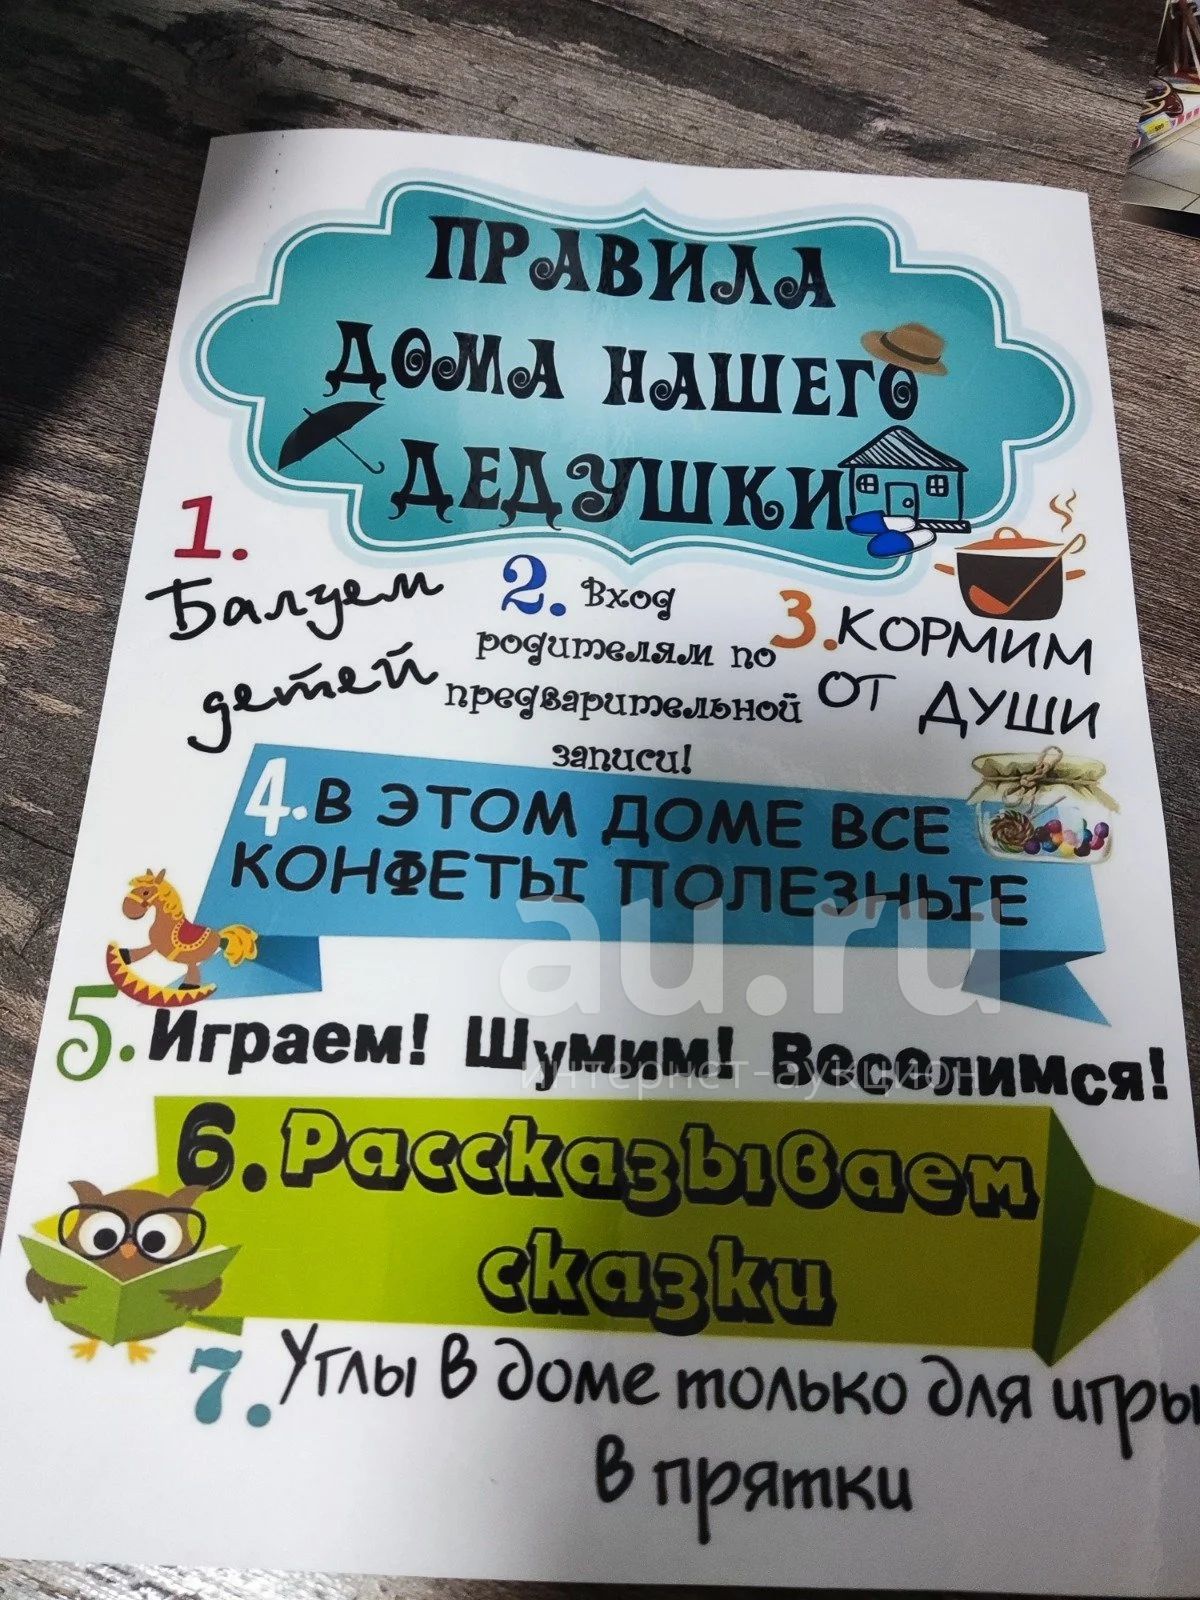 ПРАВИЛА
ДОМА НАШЕГО
ДЕДУШКИ
1.
Балуем
детей
2. Вход
родителям по
предварительной
записи!
3. КОРМИМ
ОТ ДУШИ
4. В ЭТОМ ДОМЕ ВСЕ
КОНФЕТЫ ПОЛЕЗНЫЕ
5. Играем! Шумим! Веселимся!
6. Рассказываем
сказки
7. Углы в доме только для игры
в прятки
au.ru
интернет-аукцион